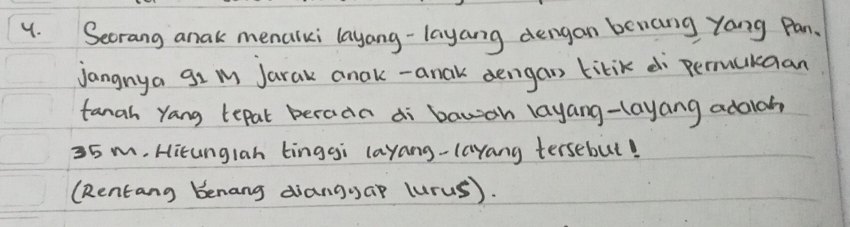 4. Seorang anak menaiki layang-layang dengan benang yang pan-
jangnya 91 M Jarak anak-anak dengan titik di permukaan
tanah yang tepat berada di bawah layang-layang adalah
35 m. Hitunglah tinggi layang-layang tersebut!
(Rentang benang dianggap lurus).